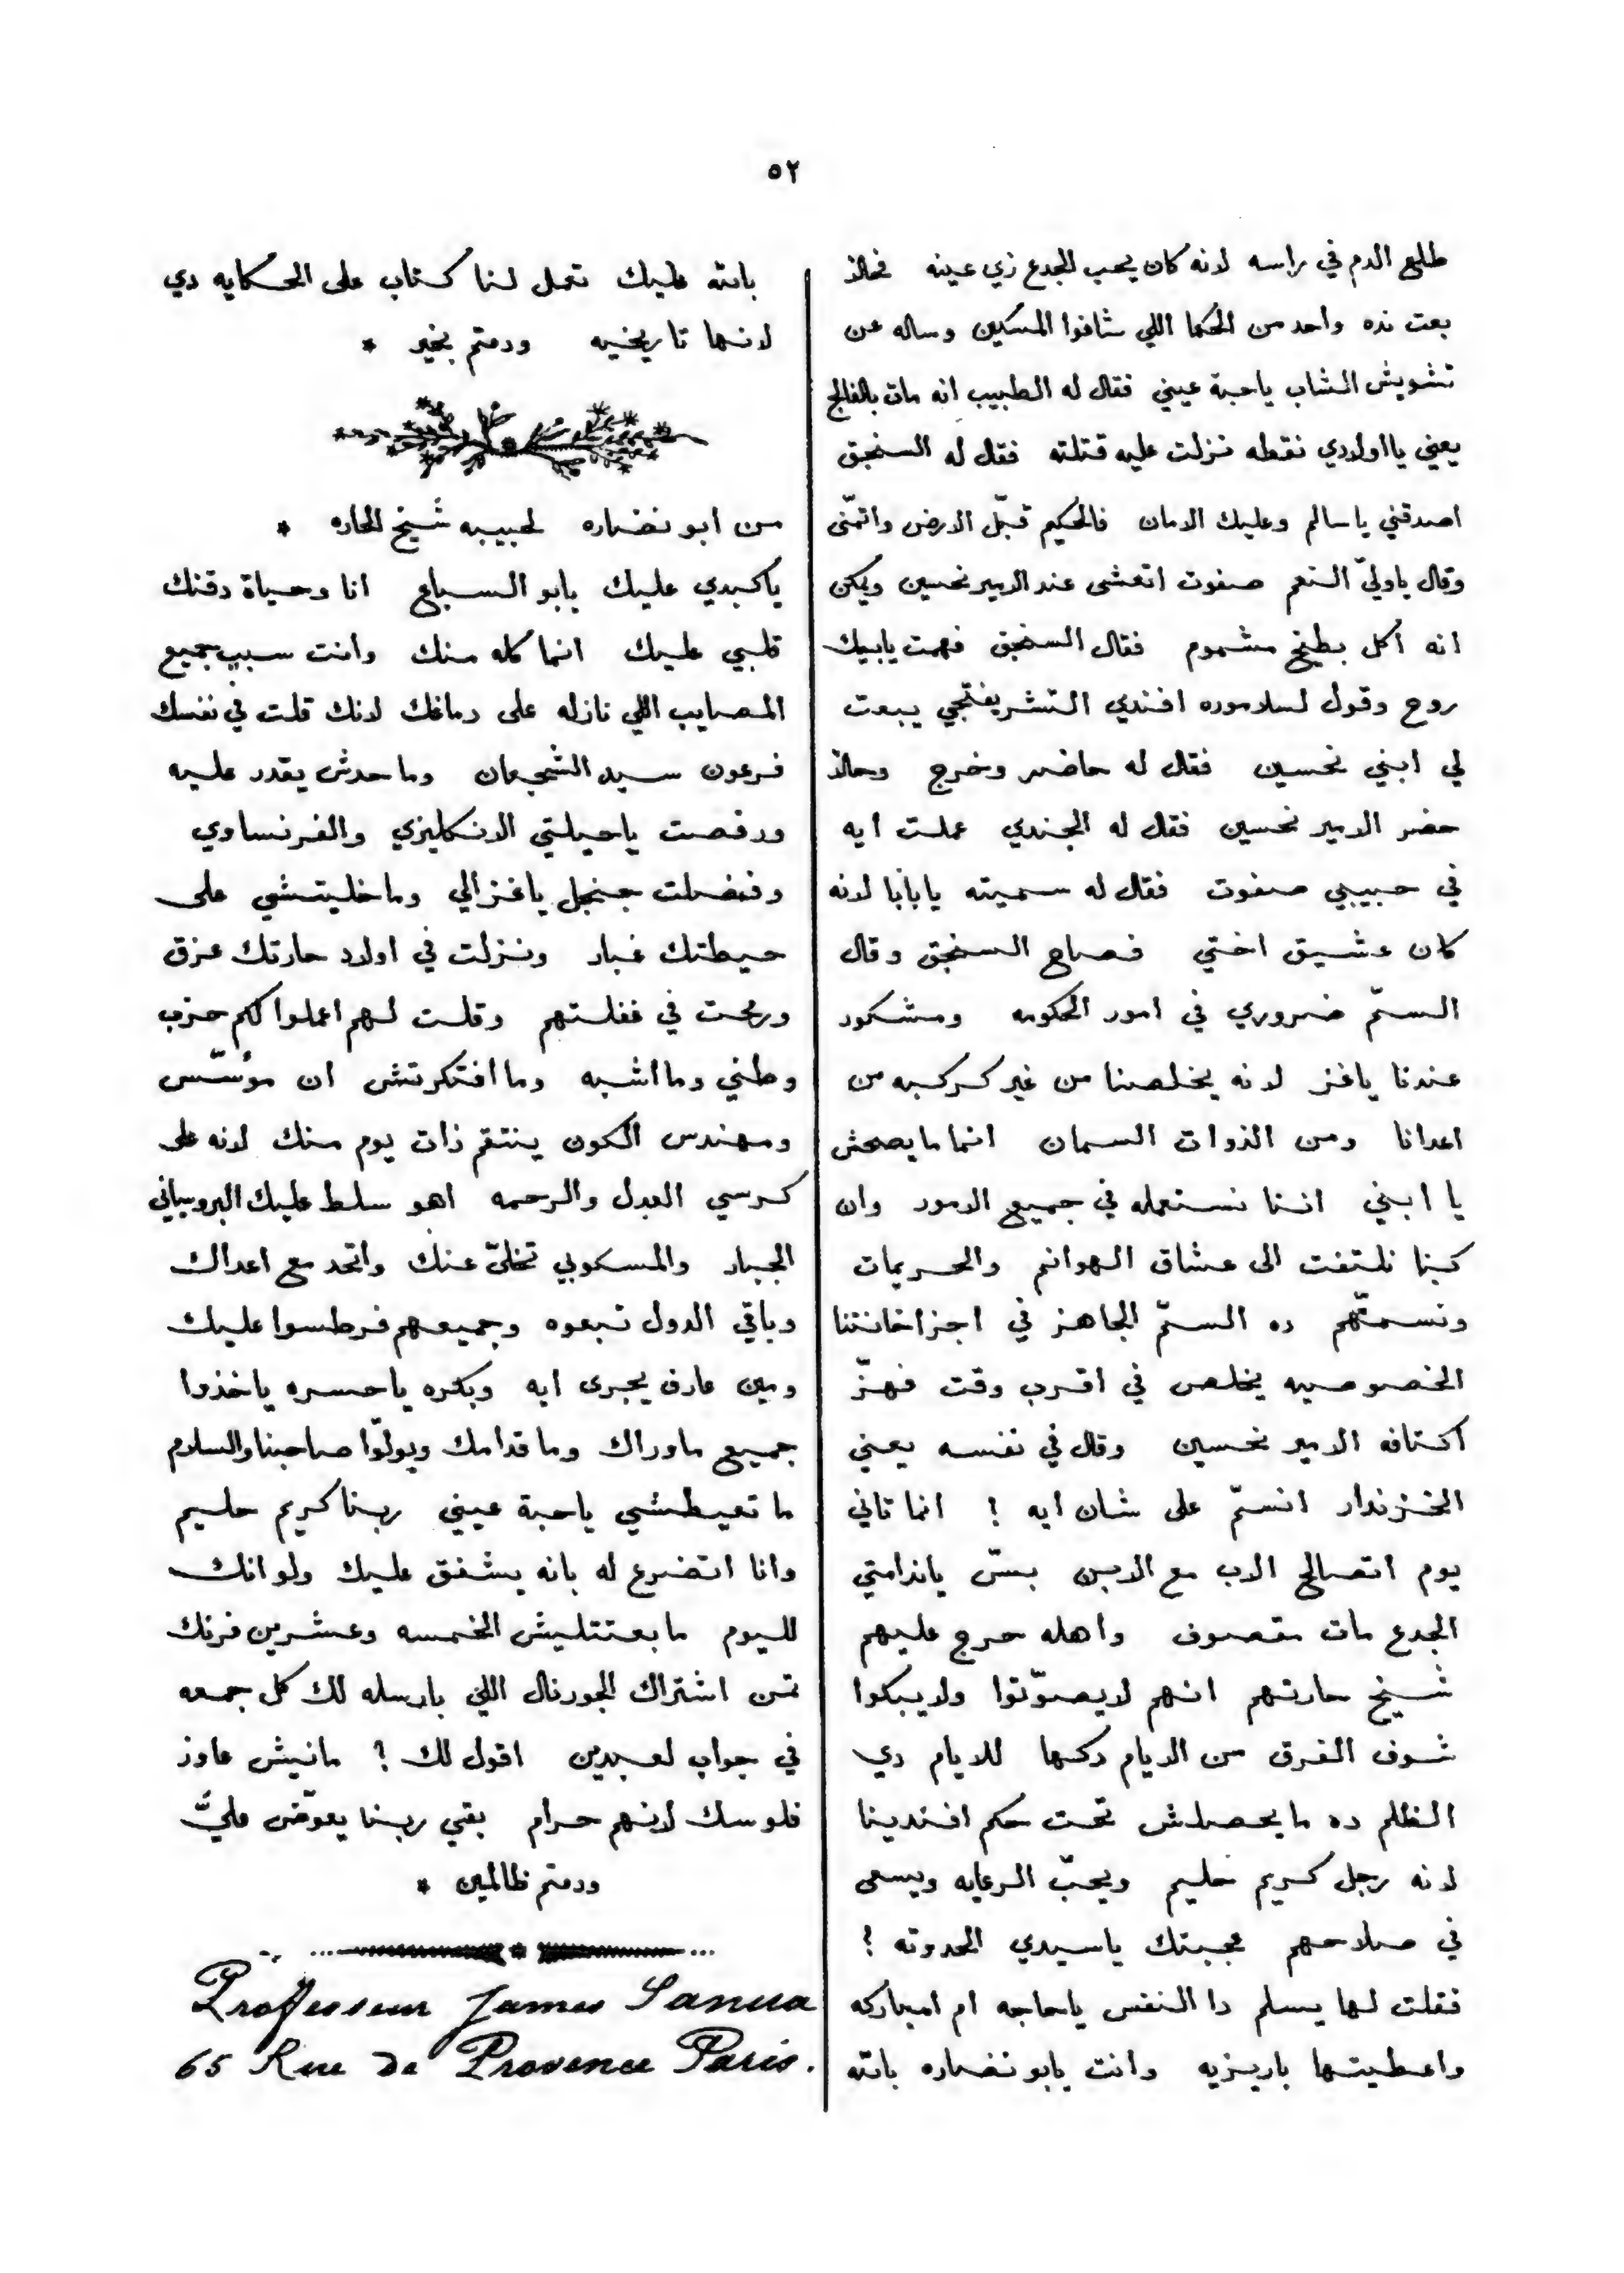 ٥٢
طلع الدم في راسه لانه كان يحب الجدع زي عينه فحالا
بعت نده واحد من الحكما اللي شافوا المسكين وساله عن
تشويش الشاب ياحبة عيني فقال له الطبيب انه مات بالفالج
يعني يا اولادي نقطه نزلت عليه قتلته فقال له السنجق
اصدقني ياسالم وعليك الامان فالحكيم قبّل الارض واتمنّى
وقال ياوليّ النعم صفوت اتعشى عند الامير نحسين ويمكن
انه اكل بطيخ مشموم فقال السنجق فهمت يابيك
روح وقول لسلاموره افندي التشريفتجي يبعت
لي ابني نحسين فقال له حاضر وخرج وحالا
حضر الامير نحسين فقال له الجندي عملت ايه
في حبيبي صفوت فقال له سميته يابابا لانه
كان عشيق اختي فصاح السنجق وقال
السمّ ضروري في امور الحكومه ومشكور
عندنا ياغز لانه يخلصنا من غير كركبه من
اعدانا ومن الذوات السمان انما مايصحش
يا ابني اننا نستعمله في جميع الامور وان
كنا نلتفت الى عشاق الهوانم والحريمات
ونسمّهم ده السمّ الجاهز في اجزاخانتنا
الخصوصيه يخلص في اقرب وقت فهزّ
اكتافه الامير نحسين وقال في نفسه يعني
الخزندار انسمّ على شان ايه ؟ انما تاني
يوم اتصالح الاب مع الابن بسّ ياندامتي
الجدع مات مقصوف واهله حرج عليهم
شيخ حارتهم انهم لايصوّتوا ولا يبكوا
شوف الفرق من الايام دكها للايام دي
الظلم ده مايحصلش تحت حكم افندينا
لانه رجل كريم حليم ويحبّ الرعايه ويسعى
في صلاحهم عجبتك ياسيدي الحدوته ؟
فقلت لها يسلم دا النفس ياحاجه ام امباركه
واعطيتها باريزيه وانت يابو نضاره بالله
بالله عليك تعمل لنا كتاب على الحكايه دي
لانها تاريخيه ودمتم بخير *
من ابو نضاره لحبيبه شيخ الحاره *
ياكبدي عليك يابو السباع انا وحياة دقنك
قلبي عليك انما كله منك وانت سبب جميع
المصايب اللي نازله على دماغك لانك قلت في نفسك
فرعون سيد الشجعان وماحدش يقدر عليه
ورقصت ياحيلتي الانكليزي والفرنساوي
وفضلت جنجل ياغزالي وماخليتشي على
حيطتك غبار ونزلت في اولاد حارتك عزق
ورمحت في غفلتهم وقلت لهم اعملوا لكم حزب
وطني وما اشبه وما افتكرتش ان مؤسّس
ومهندس الكون ينتقم ذات يوم منك لانه على
كرسي العدل والرحمه اهو سلط عليك البروسياني
الجبار والمسكوبي تخلّى عنك واتحد مع اعداك
وباقي الدول تبعوه وجميعهم فرطسوا عليك
ومين عارف يجرى ايه وبكره ياحسره ياخذوا
جميع ماوراك وما قدامك ويولّوا صاحبنا والسلام
ما تعيطشي ياحبة عيني ربنا كريم حليم
وانا اتضرع له بانه يشفق عليك ولو انك
لليوم مابعتتليش الخمسه وعشرين فرنك
تمن اشتراك الجورنال اللي بارسله لك كل جمعه
في جواب لعبدين اقول لك ؟ مانيش عاوز
فلوسك لانهم حرام بقي ربنا يعوّض عليّ
ودمتم ظالمين *
Professeur James Sanua
65 Rue de Provence Paris.